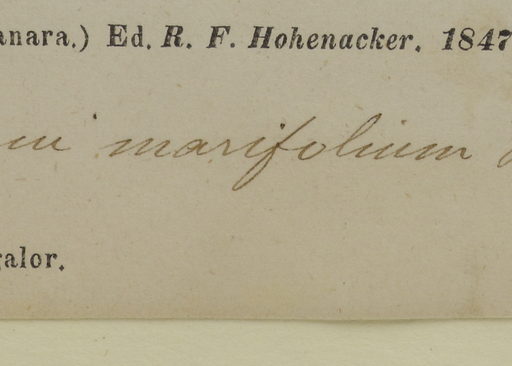 anara.) Ed. R. F. Hohenacker. 1847
um marifolium
galor.